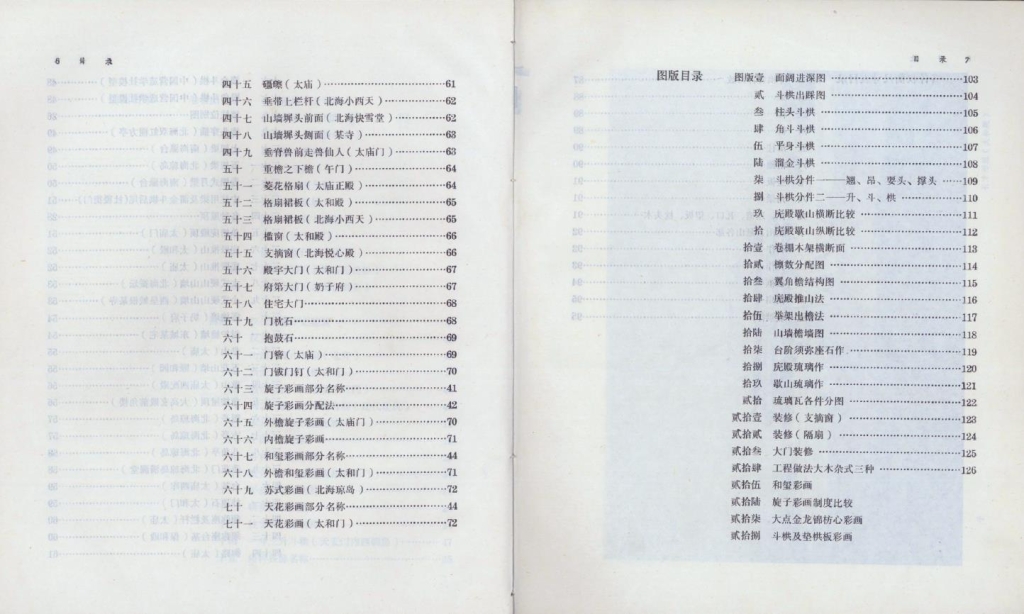 6 目 录
四十五 礓䃰(太庙)………61
四十六 垂带上栏杆(北海小西天)………62
四十七 山墙墀头前面(北海快雪堂)………62
四十八 山墙墀头侧面(某寺)………63
四十九 垂脊兽前走兽仙人(太庙门)………63
五十 重檐之下檐(午门)………64
五十一 菱花格扇(太庙正殿)………64
五十二 格扇裙板(太和殿)………65
五十三 格扇裙板(北海小西天)………65
五十四 槛窗(太和殿)………66
五十五 支摘窗(北海悦心殿)………66
五十六 殿宇大门(太和门)………67
五十七 府第大门(奶子府)………67
五十八 住宅大门………68
五十九 门枕石………68
六十 抱鼓石………69
六十一 门簪(太庙)………69
六十二 门钹门钉(太和门)………70
六十三 旋子彩画部分名称………41
六十四 旋子彩画分配法………42
六十五 外檐旋子彩画(太庙门)………70
六十六 内檐旋子彩画………71
六十七 和玺彩画部分名称………44
六十八 外檐和玺彩画(太和门)………71
六十九 苏式彩画(北海琼岛)………72
七十 天花部分名称………44
七十一 天花彩画(太和门)………72
目 录 7
图版目录 图版壹 面阔进深图………103
贰 斗栱出踩图………104
叁 柱头斗栱………105
肆 角斗栱………106
伍 平身斗栱………107
陆 溜金斗栱………108
柒 斗栱分件一——翘、昂、耍头、撑头………109
捌 斗栱分件二——升、斗、栱………110
玖 庑殿歇山横断比较………111
拾 庑殿歇山纵断比较………112
拾壹 卷棚木架横断面………113
拾贰 檩数分配图………114
拾叁 翼角檐结构图………115
拾肆 庑殿推山法………116
拾伍 举架出檐法………117
拾陆 山墙檐墙图………118
拾柒 台阶须弥座石作………119
拾捌 庑殿琉璃作………120
拾玖 歇山琉璃作………121
贰拾 琉璃瓦各件分图………122
贰拾壹 装修(支摘窗)………123
贰拾贰 装修(隔扇)………124
贰拾叁 大门装修………125
贰拾肆 工程做法大木杂式三种………126
贰拾伍 和玺彩画
贰拾陆 旋子彩画制度比较
贰拾柒 大点金龙锦枋心彩画
贰拾捌 斗栱及垫栱板彩画